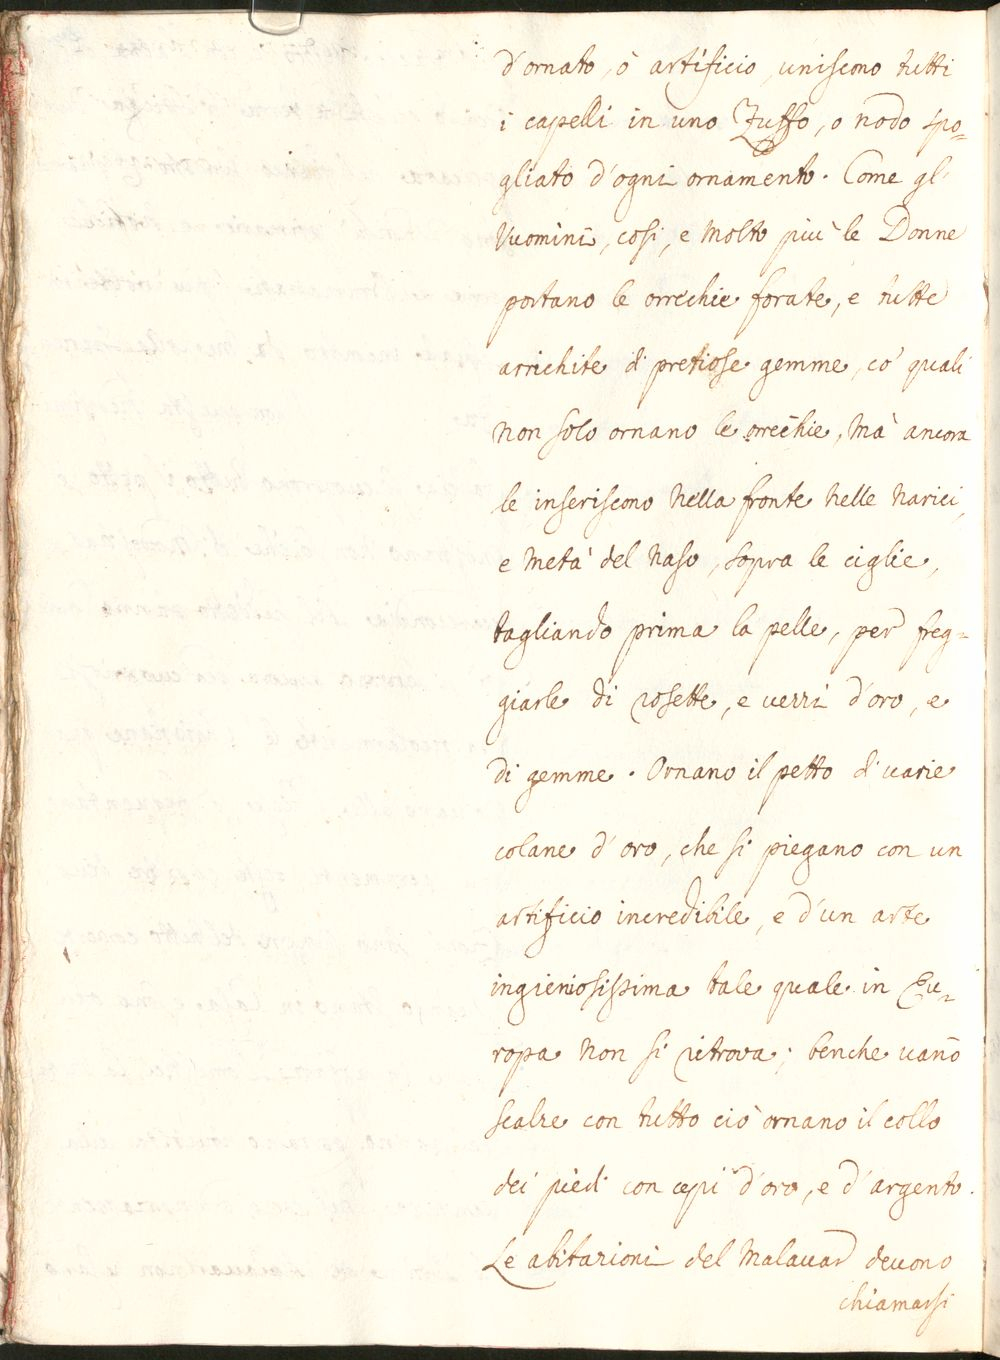 d'ornato, ò artificio, uniscono tutti
i capelli in uno Zuffo, o nodo spo-
gliato d'ogni ornamento. Come gl'
Vuomini, così, e molto più le Donne
portano le orrechie forate, e tutte
arrichite di pretiose gemme, co' quali
non solo ornano le orrechie, mà ancora
le inseriscono nella fronte nelle narici,
e metà del naso, sopra le ciglie,
tagliando prima la pelle, per freg-
giarle di rosette, e verri d'oro, e
di gemme. Ornano il petto di varie
colane d'oro, che si piegano con un
artificio incredibile, e d'un arte
ingieniosissima tale quale in Eu-
ropa non si ritrova; benche vano
scalze con tutto ciò ornano il collo
dei piedi con cepi d'oro, e d'argento.
Le abitazioni del Malavar devono
chiamarsi